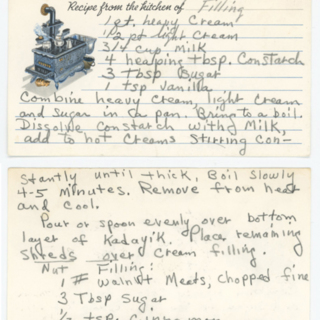 Recipe from the kitchen of Filling
1 pt. heavy Cream
1/2 pt light Cream
3/4 cup Milk
4 heaping tbsp. Constarch
3 tbsp Sugar
1 tsp Vanilla
Combine heavy cream, light cream
and sugar in a pan. Bring to a boil.
Dissolve constarch with Milk,
add to hot creams stirring con-
stantly until thick, Boil slowly
4-5 Minutes. Remove from heat
and cool.
Pour or spoon evenly over bottom
layer of Kadayik. Place remaining
shreds over cream filling.
Nut Filling:
1 # Walnut Meats, chopped fine
3 Tbsp Sugar
1/2 tsp. Cinnamon